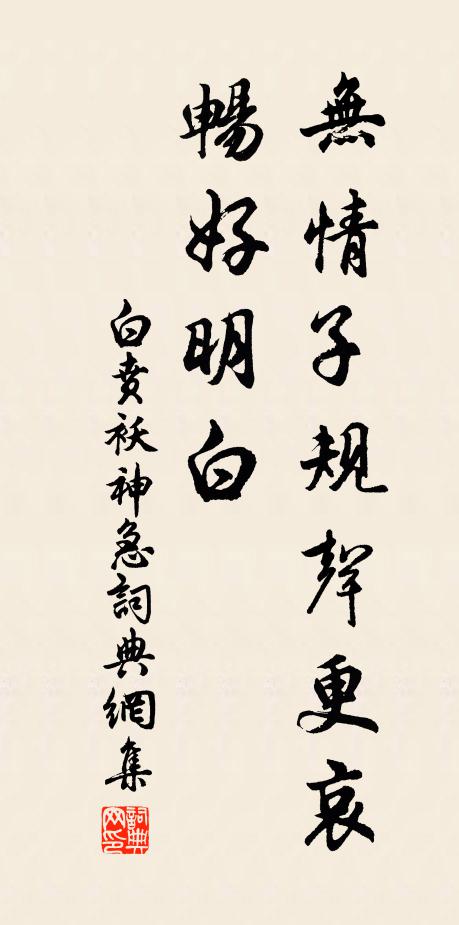 無情子規聲更哀
暢好明白
白賁祆神急詞典網集
詞典网印